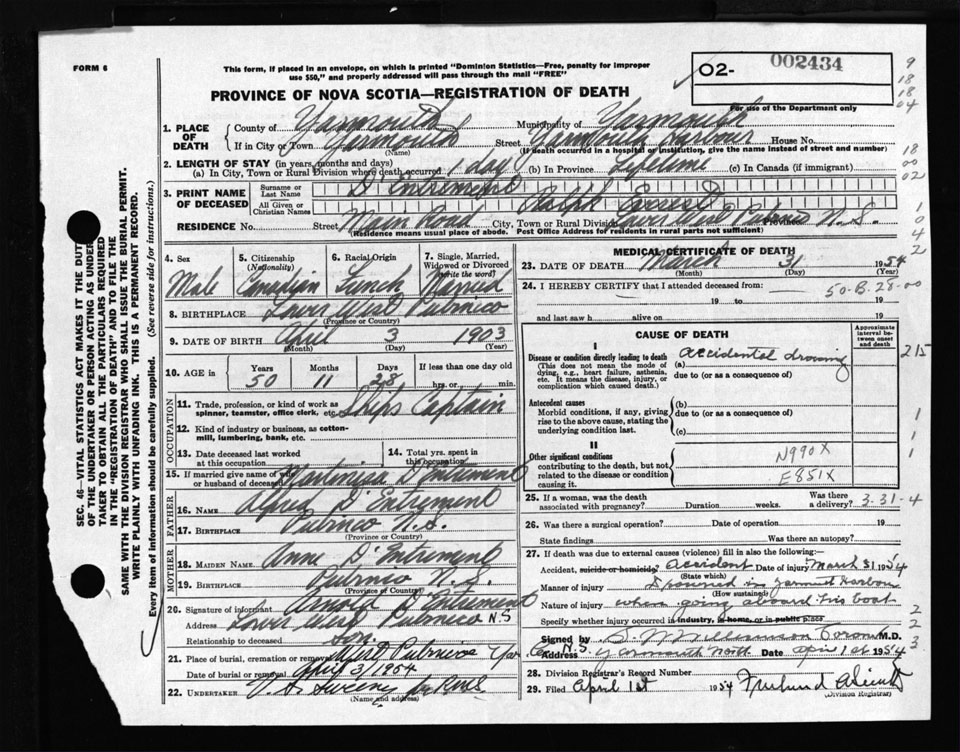 FORM 6
This form, if placed in an envelope, on which is printed "Dominion Statistics—Free, penalty for improper
use $50," and properly addressed will pass through the mail "FREE"
O2- 002434
For use of the Department only
PROVINCE OF NOVA SCOTIA—REGISTRATION OF DEATH
1. PLACE OF DEATH { County of Yarmouth Municipality of Yarmouth
If in City or Town Yarmouth Street Yarmouth House No.
(Name) (If death occurred in a hospital or institution, give the name instead of street and number)
2. LENGTH OF STAY (in years, months and days)
(a) In City, Town or Rural Division where death occurred 1 day (b) In Province Lifetime (c) In Canada (if immigrant)
3. PRINT NAME OF DECEASED { Surname or Last Name D'Entremont
All Given or Christian Names Ralph Everest
RESIDENCE No. Street Main Road City, Town or Rural Division Lower West Pubnico Province N.S.
(Residence means usual place of abode. Post Office Address for residents in rural parts not sufficient)
4. Sex Male
5. Citizenship (Nationality) Canadian
6. Racial Origin French
7. Single, Married, Widowed or Divorced (Write the word) Married
8. BIRTHPLACE Lower West Pubnico
(Province or Country)
9. DATE OF BIRTH April 3 1903
(Month) (Day) (Year)
10. AGE in { Years 50 Months 11 Days 28 If less than one day old hrs. or min.
OCCUPATION
11. Trade, profession or kind of work as spinner, teamster, office clerk, etc. Ships Captain
12. Kind of industry or business, as cotton-mill, lumbering, bank, etc.
13. Date deceased last worked at this occupation
14. Total yrs. spent in this occupation
15. If married give name of wife or husband of deceased D'Entremont
FATHER
16. NAME Alfred D'Entremont
17. BIRTHPLACE Pubnico N.S.
(Province or Country)
MOTHER
18. MAIDEN NAME Anne D'Entremont
19. BIRTHPLACE Pubnico N.S.
(Province or Country)
20. Signature of informant Arnold D'Entremont
Address Lower West Pubnico N.S
Relationship to deceased son.
21. Place of burial, cremation or removal West Pubnico Yar. Co. N.S.
Date of burial or removal April 3, 1954
22. UNDERTAKER V. S. Sweeny
(Name and address)
MEDICAL CERTIFICATE OF DEATH
23. DATE OF DEATH March 31 1954
(Month) (Day) (Year)
24. I HEREBY CERTIFY that I attended deceased from: 50-B.28-00
19 to 19
and last saw h alive on 19
CAUSE OF DEATH
Approximate interval between onset and death
I
Disease or condition directly leading to death
(This does not mean the mode of dying, e.g., heart failure, asthenia, etc. It means the disease, injury, or complication which caused death.)
(a) Accidental drowning
due to (or as a consequence of)
Antecedent causes
Morbid conditions, if any, giving rise to the above cause, stating the underlying condition last.
(b)
due to (or as a consequence of)
(c)
II
Other significant conditions
contributing to the death, but not related to the disease or condition causing it.
N990X
E851X
25. If a woman, was the death associated with pregnancy? Duration weeks. Was there a delivery? 3-31-4
26. Was there a surgical operation? Date of operation 19
State findings Was there an autopsy?
27. If death was due to external causes (violence) fill in also the following:
Accident, suicide or homicide? accident Date of injury March 31 1954
(State which)
Manner of injury Drowned in Yarmouth Harbour
(How sustained)
Nature of injury when going aboard his boat
Specify whether injury occurred in industry, in home, or in public place
Signed by M.D.
Address Yarmouth North Date April 1st 1954
28. Division Registrar's Record Number
29. Filed April 1st 1954
(Division Registrar)
SEC. 46—VITAL STATISTICS ACT MAKES IT THE DUTY
OF THE UNDERTAKER OR PERSON ACTING AS UNDER-
TAKER TO OBTAIN ALL THE PARTICULARS REQUIRED
IN THE "REGISTRATION OF DEATH" AND TO FILE THE
SAME WITH THE DIVISION REGISTRAR WHO SHALL ISSUE THE BURIAL PERMIT.
WRITE PLAINLY WITH UNFADING INK. THIS IS A PERMANENT RECORD.
Every item of information should be carefully supplied. (See reverse side for instructions.)
9
18
18
04
18
00
02
1
0
4
2
215
1
1
1
2
2
3